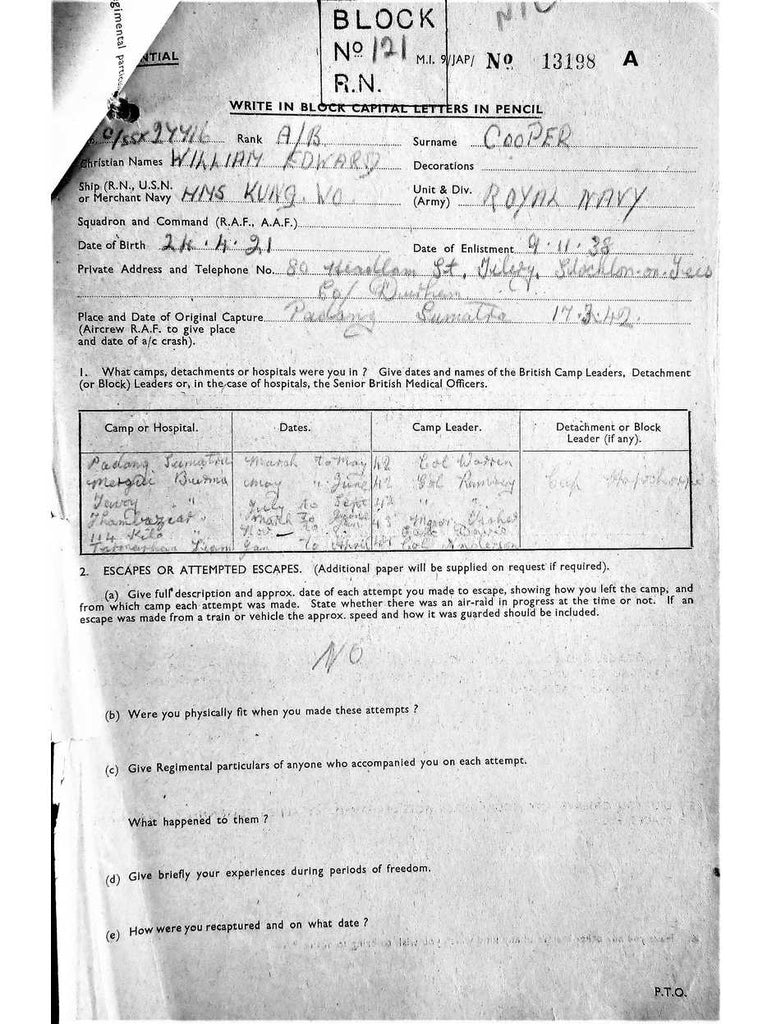 gimental partic
NTIAL
BLOCK
No 121
R.N.
M.I. 9/JAP/ No 13198 A
WRITE IN BLOCK CAPITAL LETTERS IN PENCIL
C/SSX 27716 Rank A/B Surname COOPER
Christian Names WILLIAM EDWARD Decorations
Ship (R.N., U.S.N. or Merchant Navy) HMS KUNG. WO. Unit & Div. (Army) ROYAL NAVY
Squadron and Command (R.A.F., A.A.F.)
Date of Birth 24.4.21 Date of Enlistment 9.11.38
Private Address and Telephone No. 80 Headlam St, Tilery, Stockton-on-Tees
Co/ Durham
Place and Date of Original Capture Padang Sumatra 17.3.42.
(Aircrew R.A.F. to give place
and date of a/c crash).
1. What camps, detachments or hospitals were you in ? Give dates and names of the British Camp Leaders, Detachment
(or Block) Leaders or, in the case of hospitals, the Senior British Medical Officers.
Camp or Hospital. Dates. Camp Leader. Detachment or Block Leader (if any).
Padang Sumatra March to May 42 Col Warren
Mergui Burma May " June 42 Col Ramsay Cap
Tavoy " July to Sept 42 " "
March to 43 Major
114 Kilo Nov
Jan to April Col
2. ESCAPES OR ATTEMPTED ESCAPES. (Additional paper will be supplied on request if required).
(a) Give full description and approx. date of each attempt you made to escape, showing how you left the camp, and
from which camp each attempt was made. State whether there was an air-raid in progress at the time or not. If an
escape was made from a train or vehicle the approx. speed and how it was guarded should be included.
NO
(b) Were you physically fit when you made these attempts ?
(c) Give Regimental particulars of anyone who accompanied you on each attempt.
What happened to them ?
(d) Give briefly your experiences during periods of freedom.
(e) How were you recaptured and on what date ?
P.T.O.